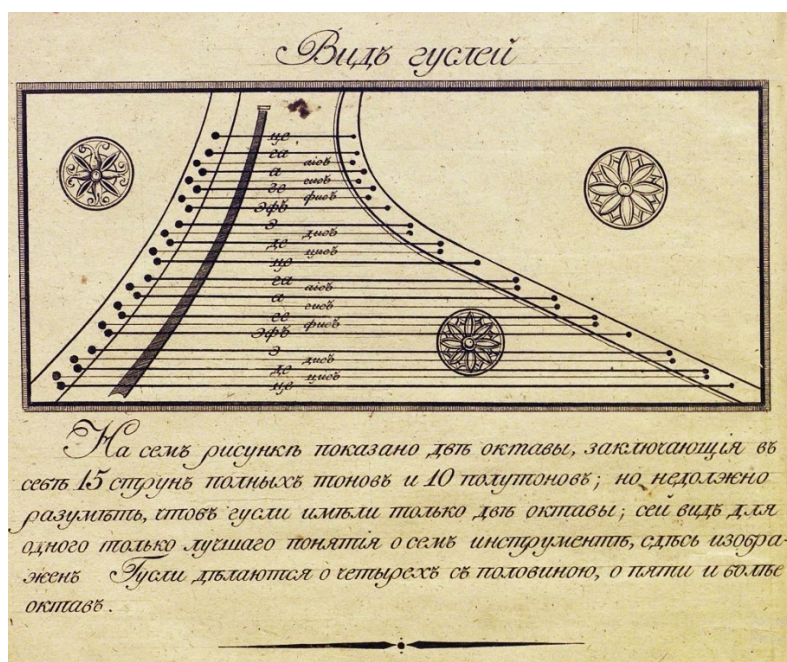 Видъ гуслей
це
га
аисъ
а
гисъ
ге
фисъ
эфъ
э
дисъ
де
цисъ
це
га
аисъ
а
гисъ
ге
фисъ
эфъ
э
дисъ
де
цисъ
це
На семъ рисункѣ показано двѣ октавы, заключающія въ
себѣ 15 струнъ полныхъ тоновъ и 10 полутоновъ; но недолжно
разумѣть, чтобъ гусли имѣли только двѣ октавы; сей видъ для
одного только лучшаго понятія о семъ инструментѣ, сдѣсь изобра-
женъ Гусли дѣлаются о четырехъ съ половиною, о пяти и болѣе
октавъ.